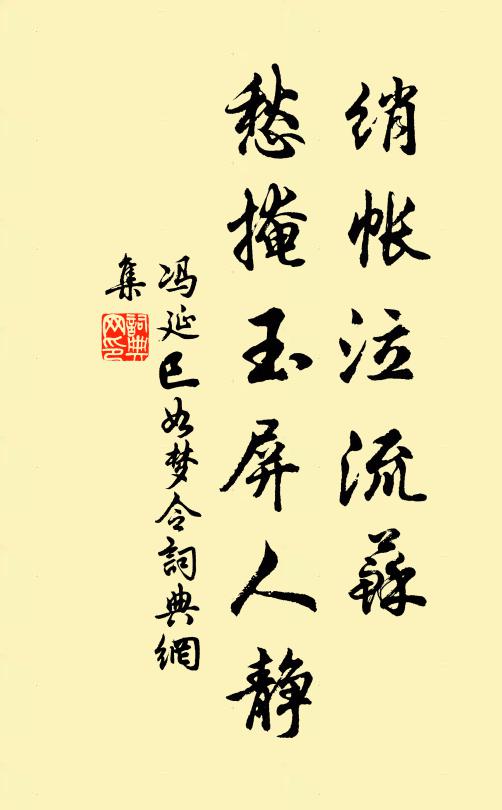 绡帐泣流蘇
愁掩玉屏人静
冯延巳如梦令詞典網
集
詞典网印